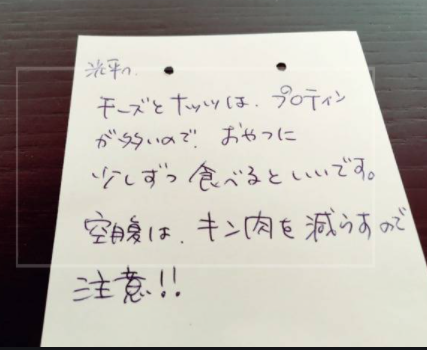 光平へ
チーズとナッツは、プロティン
が多いので、おやつに
少しずつ食べるといいです。
空腹は、キン肉を減らすので
注意!!